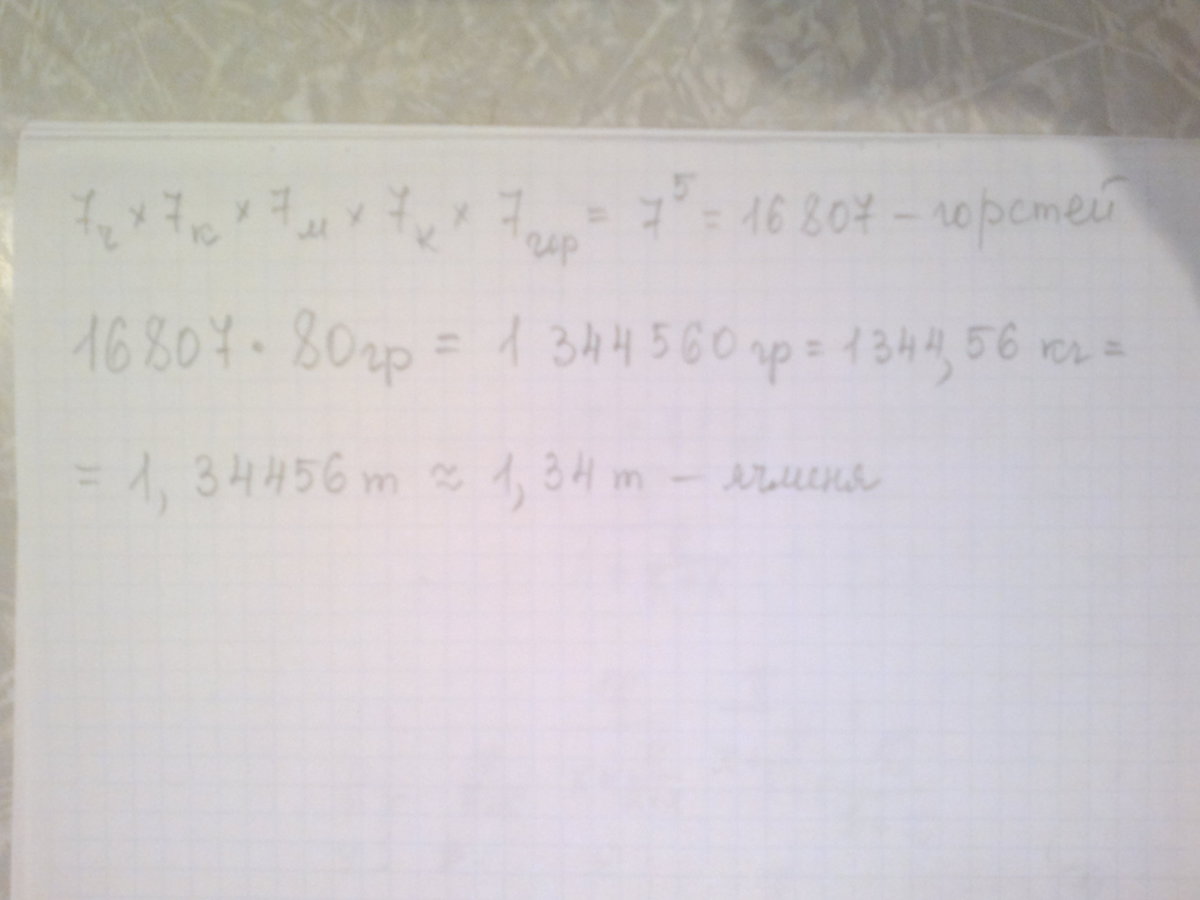 7ч × 7к × 7м × 7к × 7гор = 7⁵ = 16 807 – горстей
16807 · 80гр = 1 344560 гр = 1344,56 кг =
= 1, 34456 т ≈ 1, 34 т – ячменя